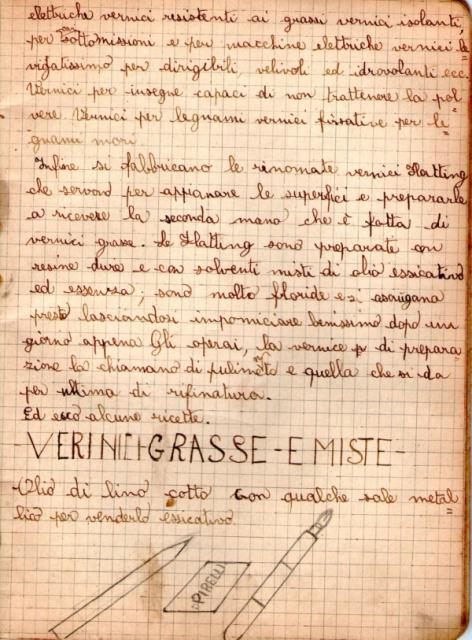 elettriche vernici resistenti ai grassi vernici isolanti,
per sottomissioni e per macchine elettriche vernici le
vigatissimo per dirigibili, velivoli ed idrovolanti ecc
Vernici per insegne capaci di non trattenere la pol
vere Vernici per legnami vernici fissative per le=
gnami mori
Infine si fabbricano le rinomate vernici Flatting
che servono per appianare le superfici e prepararle
a ricevere la seconda mano che è fatta di
vernici grasse. Le Flatting sono preparate con
resine dure e con solventi misti di olio essicativo
ed essenza; sono molto floride e si asciugano
presto lasciandosi impomiciare benissimo dopo un
giorno appena Gli operai, la vernice di prepara
zione la chiamano di pulimento e quella che si da
per ultima di rifinatura.
Ed ecco alcune ricette.
-VERINICI-GRASSE-E MISTE-
Olio di lino cotto con qualche sale metal=
lico per venderlo essicativo
PIRELLI